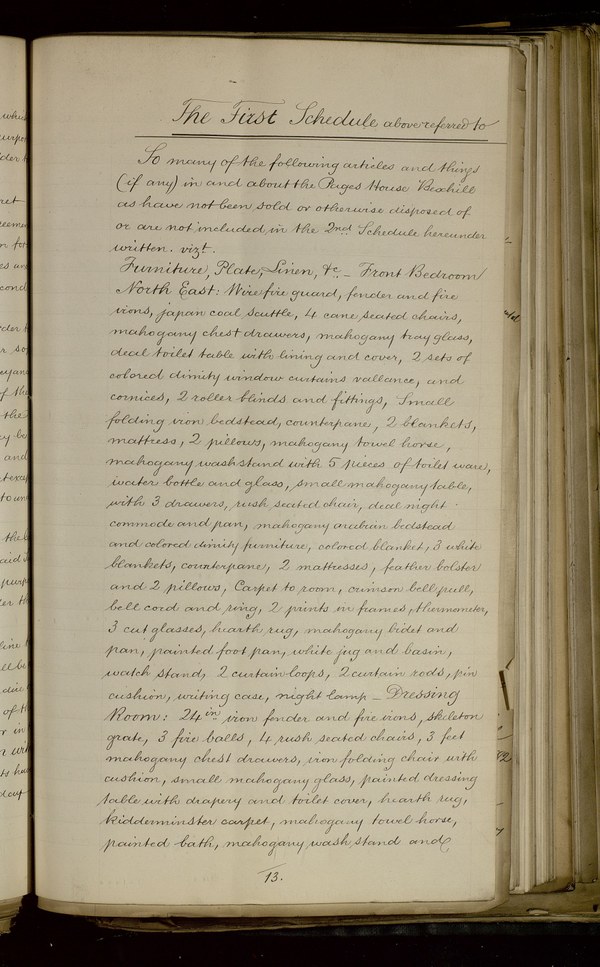 The First Schedule above referred to
So many of the following articles and things
(if any) in and about the Pages House Bexhill
as have not been sold or otherwise disposed of
or are not included in the 2nd Schedule hereunder
written. vizt.
Furniture, Plate, Linen, &c. – Front Bedroom
North East: Wire fire guard, fender and fire
irons, japan coal scuttle, 4 cane seated chairs,
mahogany chest drawers, mahogany tray glass,
deal toilet table with lining and cover, 2 sets of
colored dimity window curtains vallance, and
cornices, 2 roller blinds and fittings, Small
folding iron bedstead, counterpane, 2 blankets,
mattress, 2 pillows, mahogany towel horse,
mahogany washstand with 5 pieces of toilet ware,
water bottle and glass, small mahogany table,
with 3 drawers, rush seated chair, deal night
commode and pan, mahogany arabian bedstead
and colored dimity furniture, colored blanket, 3 white
blankets, counterpane, 2 mattresses, feather bolster
and 2 pillows, Carpet to room, crimson bell pull,
bell cord and ring, 2 prints in frames, thermometer,
3 cut glasses, hearth rug, mahogany bidet and
pan, painted foot pan, white jug and basin,
watch stand, 2 curtain loops, 2 curtain rods, pin
cushion, writing case, night lamp – Dressing
Room: 24in iron fender and fire irons, skeleton
grate, 3 fire balls, 4 rush seated chairs, 3 feet
mahogany chest drawers, iron folding chair with
cushion, small mahogany glass, painted dressing
table with drapery and toilet cover, hearth rug,
kidderminster carpet, mahogany towel horse,
painted bath, mahogany wash stand and
13.